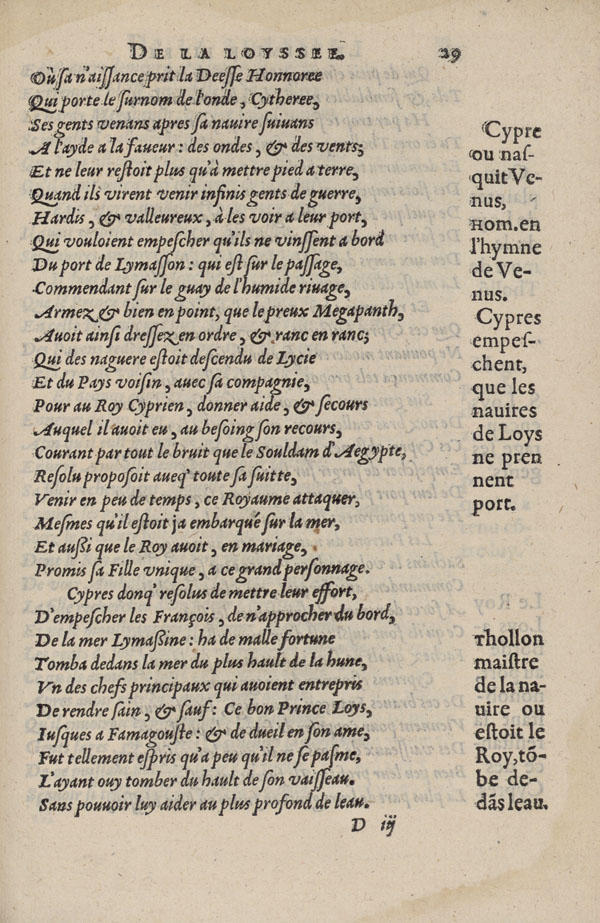 DE LA LOYSSEE. 29
Où sa n'aissance prit la Deesse Honnoree
Qui porte le surnom de l'onde, Cytheree,
Ses gents venans apres sa nauire suiuans
A l'ayde a la faueur: des ondes, & des vents;
Et ne leur restoit plus qu'à mettre pied a terre,
Quand ils virent venir infinis gents de guerre,
Hardis, & valleureux, à les voir a leur port,
Qui vouloient empescher qu'ils ne vinssent a bord
Du port de Lymasson: qui est sur le passage,
Commendant sur le guay de l'humide riuage,
Armez & bien en point, que le preux Megapanth,
Auoit ainsi dressez en ordre, & ranc en ranc;
Qui des naguere estoit descendu de Lycie
Et du Pays voisin, auec sa compagnie,
Pour au Roy Cyprien, donner aide, & secours
Auquel il auoit eu, au besoing son recours,
Courant par tout le bruit que le Souldam d'Aegypte,
Resolu proposoit aueq' toute sa suitte,
Venir en peu de temps, ce Royaume attaquer,
Mesmes qu'il estoit ja embarqué sur la mer,
Et aussi que le Roy auoit, en mariage,
Promis sa Fille vnique, a ce grand personnage.
Cypres donq' resolus de mettre leur effort,
D'empescher les François, de n'approcher du bord,
De la mer Lymassine: ha de malle fortune
Tomba dedans la mer du plus hault de la hune,
Vn des chefs principaux qui auoient entrepris
De rendre sain, & sauf: Ce bon Prince Loys,
Iusques a Famagouste: & de dueil en son ame,
Fut tellement espris qu'a peu qu'il ne se pasme,
L'ayant ouy tomber du hault de son vaisseau.
Sans pouuoir luy aider au plus profond de leau.
D iij
Cypre
ou nas-
quit Ve-
nus,
Hom. en
l'hymne
de Ve-
nus.
Cypres
empes-
chent,
que les
nauires
de Loys
ne pren
nent
port.
Thollon
maistre
de la na-
uire ou
estoit le
Roy, tõ-
be de-
dãs leau.